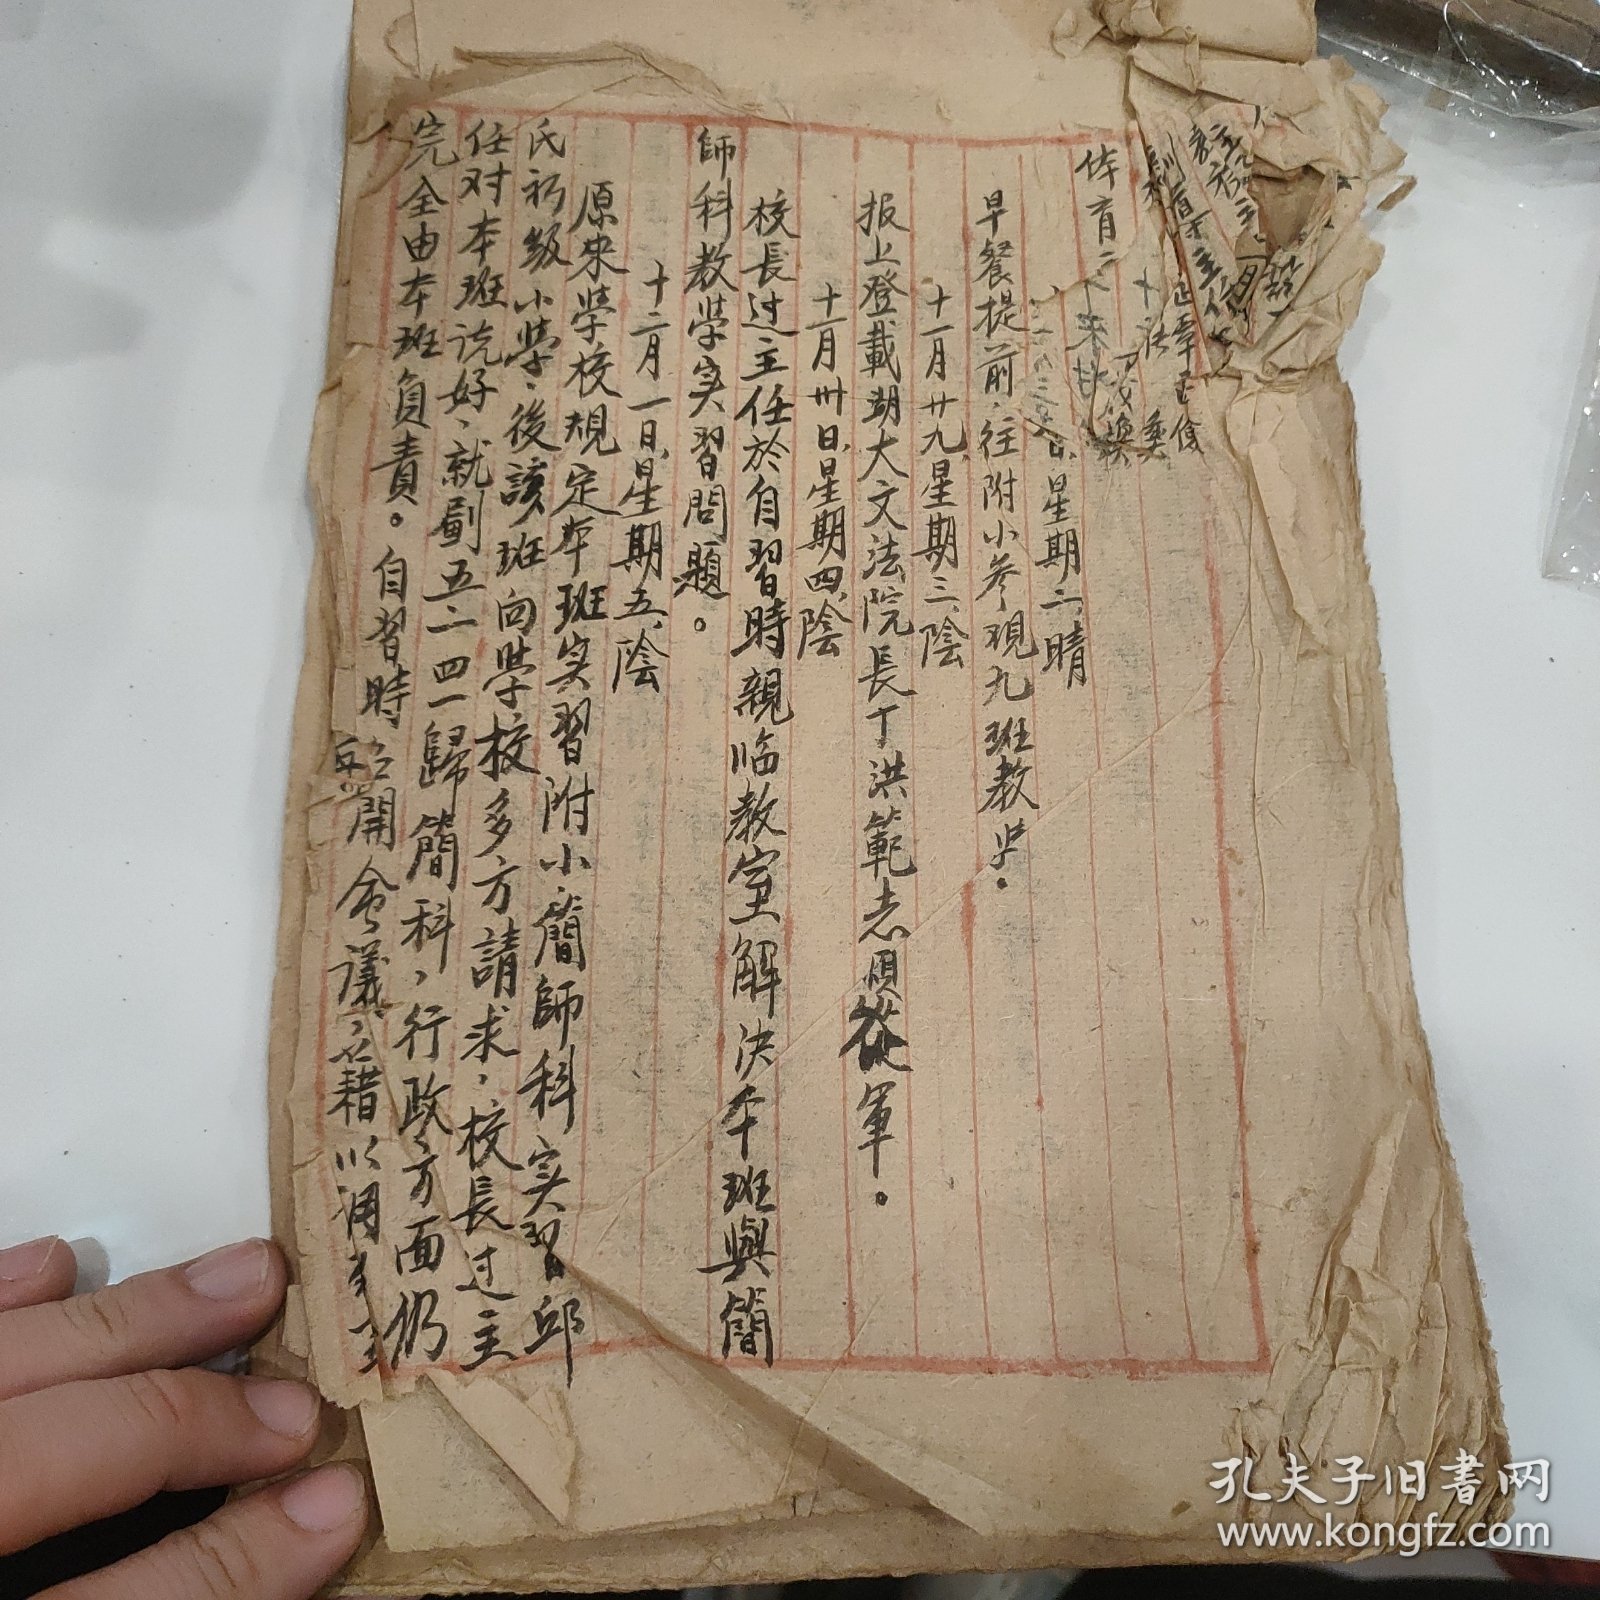 体育
日，星期二，晴
早餐提前，往附小参观九班教学。
十一月廿九，星期三，陰
报上登載湖大文法院長丁洪範志願從軍。
十一月卅日，星期四，陰
校長过主任於自習時親临教室解決本班與簡
師科教学实習問題。
十二月一日，星期五，陰
原来学校規定本班实習附小，簡師科实習邱
氏初級小学，後該班向学校多方請求，校長过主
任对本班说好，就劃五二四一歸簡科，行政方面仍
完全由本班負責。自習時開会議，藉以
孔夫子旧书网
www.kongfz.com